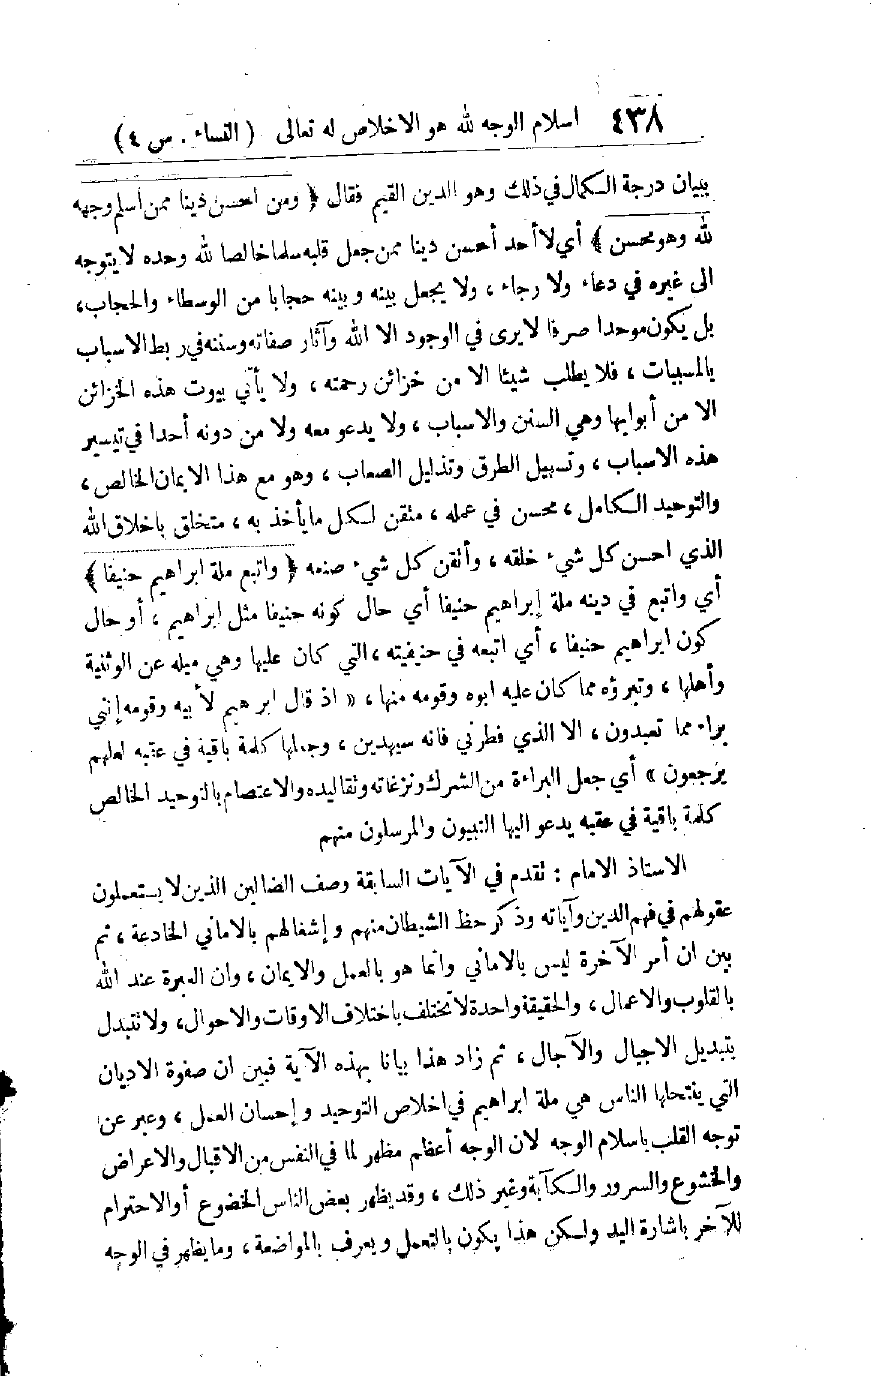 ٤٣٨ اسلام الوجه لله هو الاخلاص له تعالى ( النساء . س ٤ )
ببيان درجة الكمال في ذلك وهو الدين القيم فقال ﴿ ومن احسن دينا ممن أسلم وجهه
لله وهو محسن ﴾ أي لا أحد أحسن دينا ممن جعل قلبه سلما خالصا لله وحده لا يتوجه
الى غيره في دعاء ولا رجاء ، ولا يجعل بينه وبينه حجابا من الوسطاء والحجاب ،
بل يكون موحدا صرفا لا يرى في الوجود الا الله وآثار صفاته وسننه في ربط الاسباب
بالمسببات ، فلا يطلب شيئا الا من خزائن رحمته ، ولا يأتي بيوت هذه الخزائن
الا من أبوابها وهي السنن والاسباب ، ولا يدعو معه ولا من دونه أحدا في تيسير
هذه الاسباب ، وتسهيل الطرق وتذليل الصعاب ، وهو مع هذا الايمان الخالص ،
والتوحيد الكامل ، محسن في عمله ، متقن لكل ما يأخذ به ، متخلق باخلاق الله
الذي احسن كل شيء خلقه ، وأتقن كل شيء صنعه ﴿ واتبع ملة ابراهيم حنيفا ﴾
أي واتبع في دينه ملة إبراهيم حنيفا أي حال كونه حنيفا مثل ابراهيم ، أو حال
كون ابراهيم حنيفا ، أي اتبعه في حنيفيته ، التي كان عليها وهي ميله عن الوثنية
وأهلها ، وتبرؤه مما كان عليه ابوه وقومه منها ، « اذ قال ابرهيم لأبيه وقومه إنني
براء مما تعبدون ، الا الذي فطرني فانه سيهدين ، وجعلها كلمة باقية في عقبه لعلهم
يرجعون » أي جعل البراءة من الشرك ونزغاته وتقاليده والاعتصام بالتوحيد الخالص
كلمة باقية في عقبه يدعو اليها النبيون والمرسلون منهم
الاستاذ الامام : تقدم في الآيات السابقة وصف الضالين الذين لا يستعملون
عقولهم في فهم الدين وآياته وذكر حظ الشيطان منهم وإشغالهم بالاماني الخادعة ، ثم
بين ان أمر الآخرة ليس بالاماني وانما هو بالعمل والايمان ، وان العبرة عند الله
بالقلوب والاعمال ، والحقيقة واحدة لا تختلف باختلاف الاوقات والاحوال، ولا تتبدل
بتبديل الاجيال والآجال ، ثم زاد هذا بيانا بهذه الآية فبين ان صفوة الاديان
التي ينتحلها الناس هي ملة ابراهيم في اخلاص التوحيد وإحسان العمل ، وعبر عن
توجه القلب باسلام الوجه لان الوجه أعظم مظهر لما في النفس من الاقبال والاعراض
والخشوع والسرور والكآبة وغير ذلك ، وقد يظهر بعض الناس الخضوع أو الاحترام
للآخر باشارة اليد ولكن هذا يكون بالتعمل ويعرف بالمواضعة ، وما يظهر في الوجه